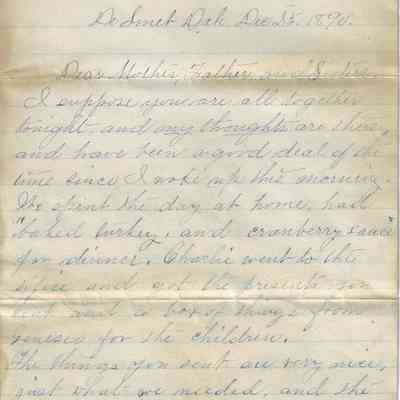 De Smet Dak. Dec 25. 1890.
Dear Mother, Father, and Sister.
I suppose you are all together
tonight, and my thoughts are there,
and have been a good deal of the
time since I woke up this morning.
We spent the day at home, had
"baked turkey, and cranberry sauce"
for dinner. Charlie went to the
office and got the presents
sent and a box of things from
for the children.
The things you sent are very nice,
just what we needed, and the